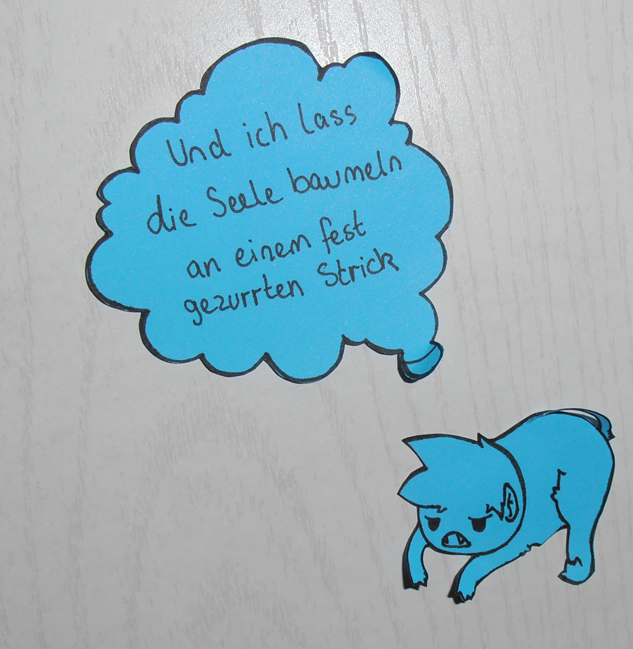 Und ich lass
die Seele baumeln
an einem fest
gezurrten Strick